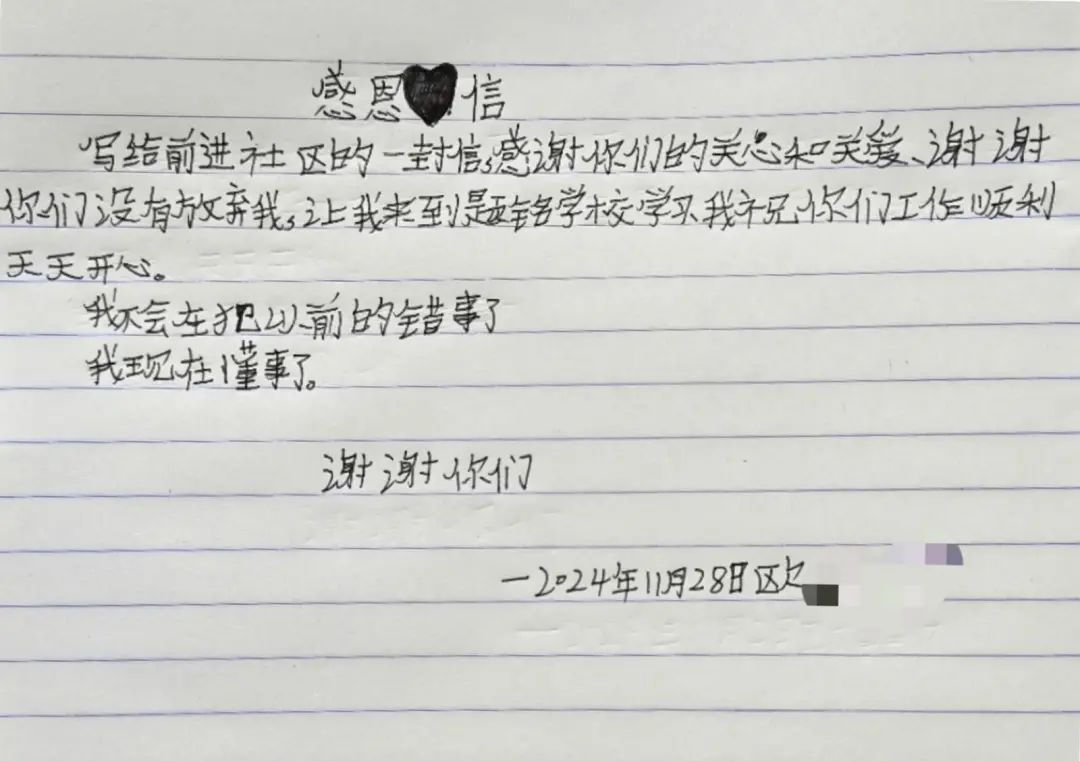 感恩信
写给前进社区的一封信,感谢你们的关心和关爱、谢谢
你们没有放弃我,让我来到启铭学校学习我祝你们工作顺利
天天开心。
我不会在犯以前的错事了
我现在懂事了。
谢谢你们
一2024年11月28日欧